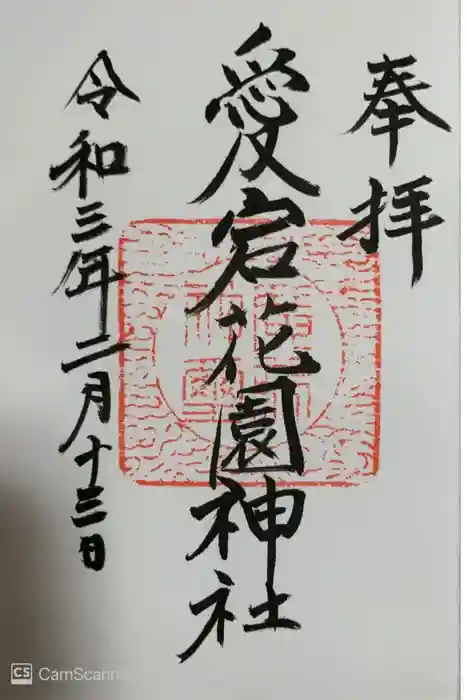 奉拝
愛宕花園神社
令和三年二月十三日
CS CamScanne